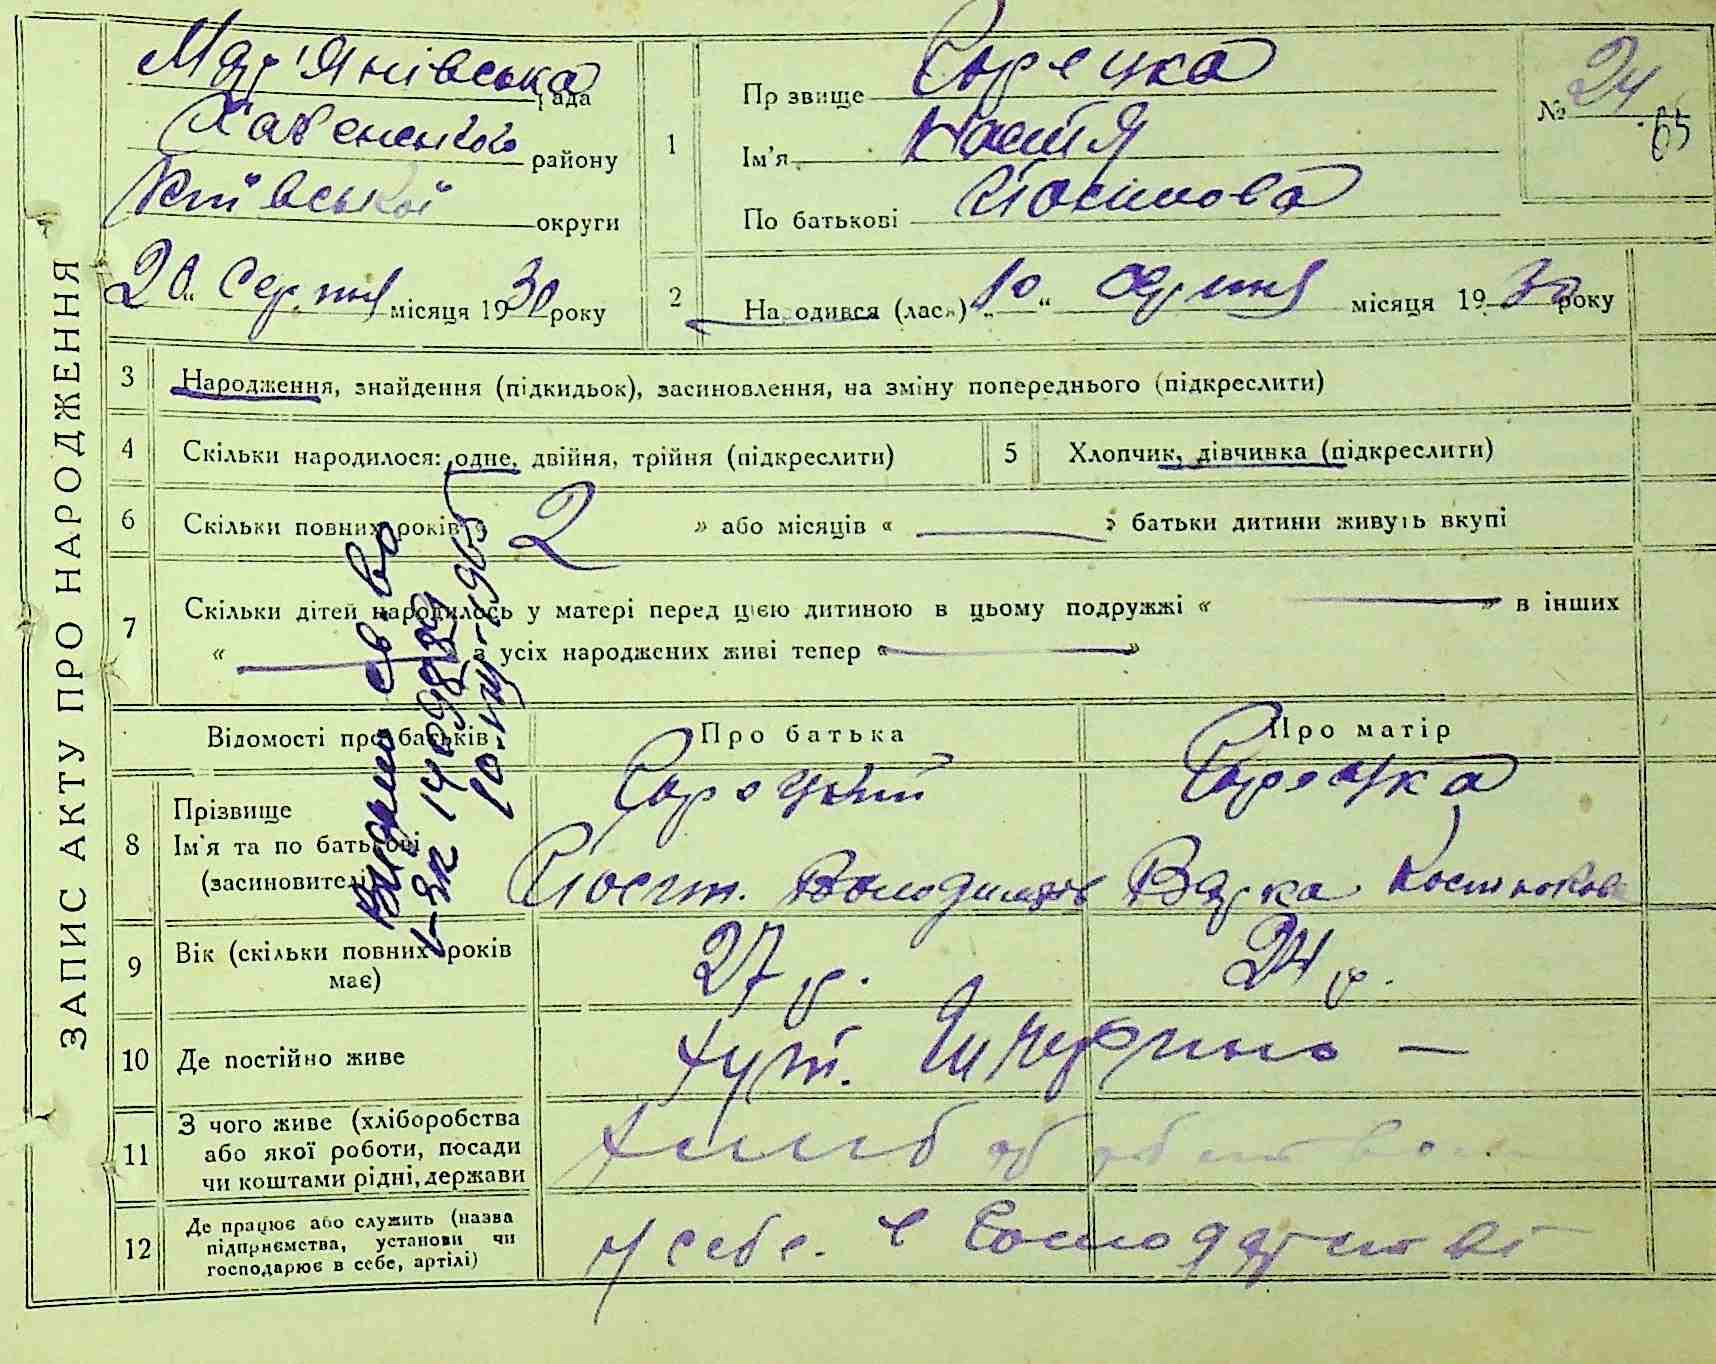 ЗАПИС АКТУ ПРО НАРОДЖЕННЯ
Мар'янівська рада
Хабенського району
Київської округи
20 " Серпня місяця 1930 року
1 Прзвище Сорецка
Ім'я Настя
По батькові Йосипова
№ 24
65
2 Народився (лася) „ 10 " серпня місяця 1930 року
3 Народження, знайдення (підкидьок), засиновлення, на зміну попереднього (підкреслити)
4 Скільки народилося: одне, двійня, трійня (підкреслити)
5 Хлопчик, дівчинка (підкреслити)
6 Скільки повних років « 2 » або місяців « — » батьки дитини живуть вкупі
7 Скільки дітей народилось у матері перед цією дитиною в цьому подружжі « — » в інших
« — » з усіх народжених живі тепер « — »
Відомості про батьків
Про батька
Про матір
8 Прізвище
Ім'я та по батькові
(засиновителі)
Сорецкий
Йосип. Володимиров
Сорецка
Варка
9 Вік (скільки повних років має)
27 р.
24 р.
10 Де постійно живе
хут. —
11 З чого живе (хліборобства
або якої роботи, посади
чи коштами рідні, держави
Хлиборобством
12 Де працює або служить (назва
підприємства, установи чи
господарює в себе, артілі)
У себе в господарстві
Видано св во
10-VIII-1965